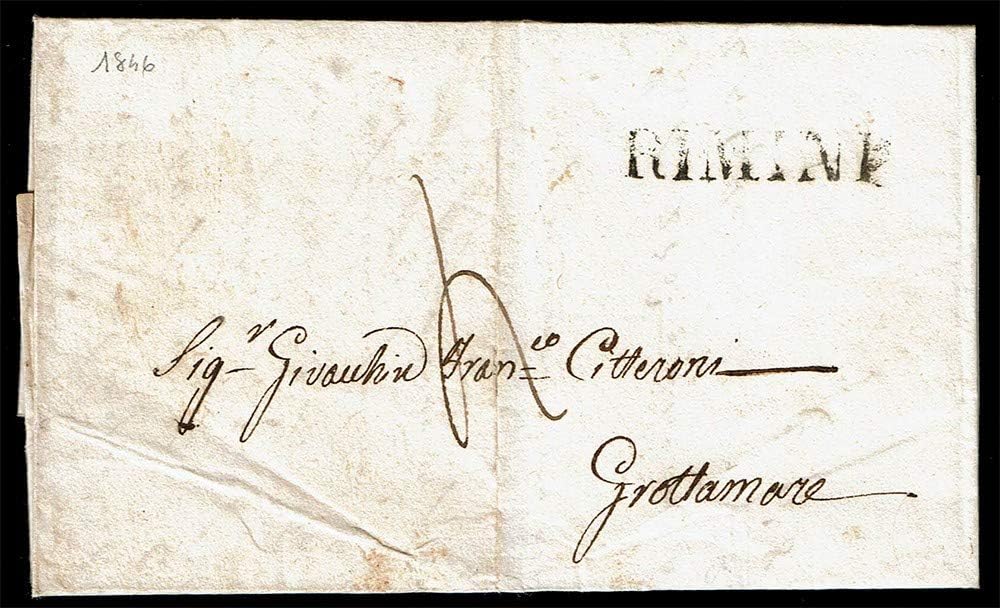 1846
RIMINI
Sigr Givachin Franco Citteroni
Grottamare